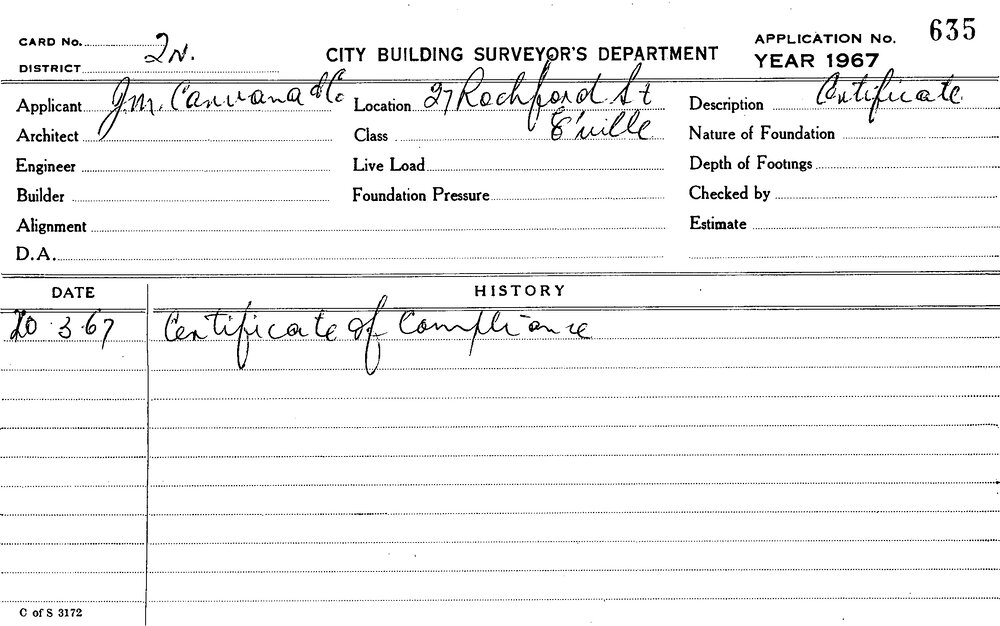 CARD No. 2N.
DISTRICT
CITY BUILDING SURVEYOR'S DEPARTMENT
APPLICATION No. 635
YEAR 1967
Applicant J.M. Canvana & Co Location 27 Rochford St Description Certificate
Architect Class E'ville Nature of Foundation
Engineer Live Load Depth of Footings
Builder Foundation Pressure Checked by
Alignment Estimate
D.A.
DATE HISTORY
20.3.67 Certificate of Compliance
C of S 3172